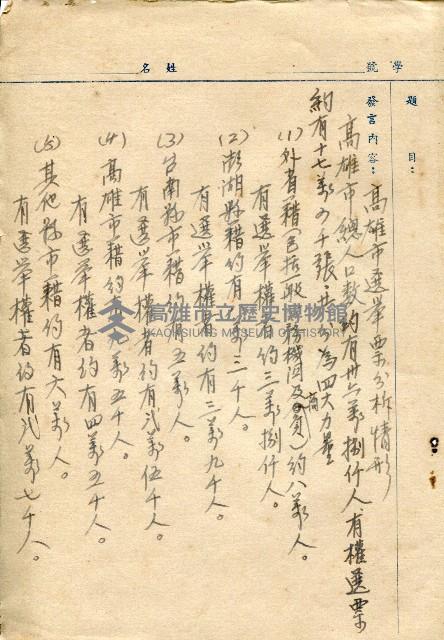 學號　　　　姓名
題目：
發言內容：高雄市選舉票分析情形
高雄市總人口數約有卅六萬捌仟人有權選票
約有十七萬四千張，共分為四大力量
(1)外省籍（包括政府機関及商員）約八萬人。
有選舉權者約三萬捌仟人。
(2)澎湖縣籍約有萬三千人。
有選舉權者約有三萬九千人。
(3)台南縣市籍約有五萬人。
有選舉權者約有弍萬伍千人。
(4)高雄市籍約有九萬五千人。
有選舉權者約有四萬五千人。
(5)其他縣市籍約有六萬人。
有選舉權者約有弍萬七千人。
高雄市立歷史博物館
KAOHSIUNG MUSEUM OF HISTORY